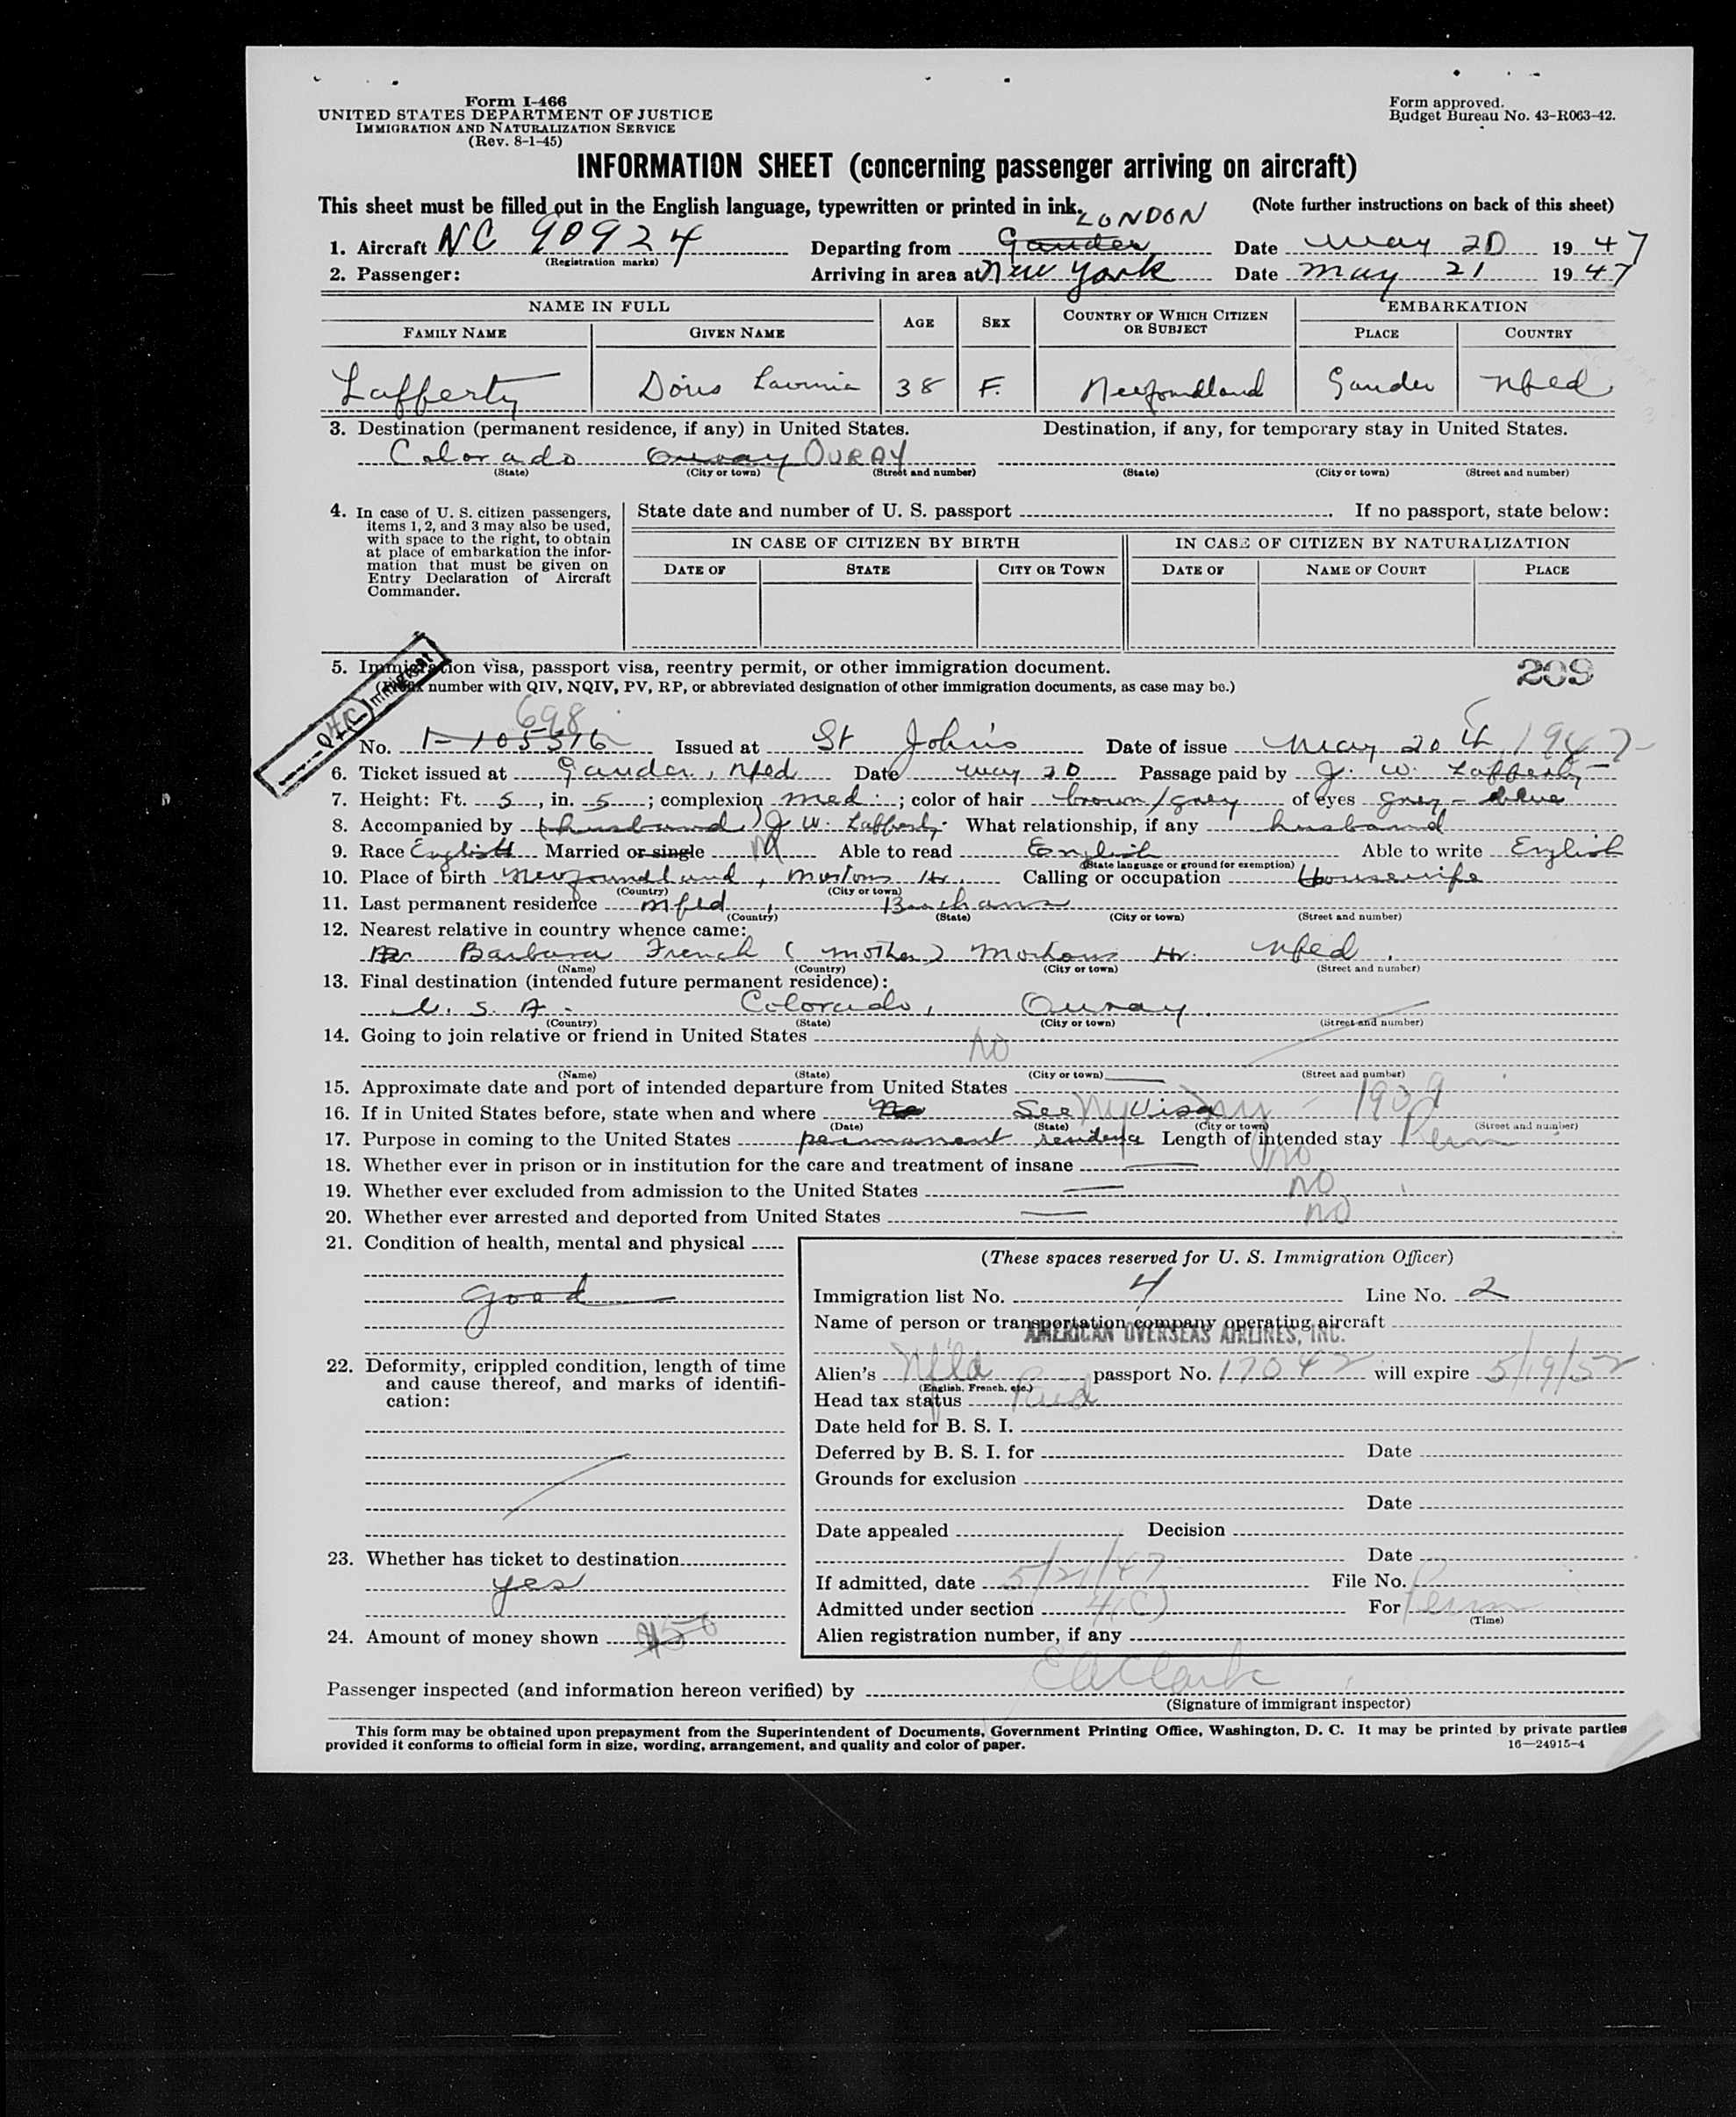 Form I-466
UNITED STATES DEPARTMENT OF JUSTICE
IMMIGRATION AND NATURALIZATION SERVICE
(Rev. 8-1-45)
Form approved.
Budget Bureau No. 43-R063-42.
INFORMATION SHEET (concerning passenger arriving on aircraft)
This sheet must be filled out in the English language, typewritten or printed in ink.
(Note further instructions on back of this sheet)
LONDON
1. Aircraft NC 90924 Departing from Gander Date May 20 1947
(Registration marks)
2. Passenger: Arriving in area at New York Date May 21 1947
NAME IN FULL AGE SEX COUNTRY OF WHICH CITIZEN OR SUBJECT EMBARKATION
FAMILY NAME GIVEN NAME PLACE COUNTRY
Lafferty Doris Lavinia 38 F. Newfoundland Gander Nfld
3. Destination (permanent residence, if any) in United States. Destination, if any, for temporary stay in United States.
Colorado Ouray OURAY
(State) (City or town) (Street and number) (State) (City or town) (Street and number)
4. In case of U. S. citizen passengers, items 1, 2, and 3 may also be used, with space to the right, to obtain at place of embarkation the information that must be given on Entry Declaration of Aircraft Commander.
State date and number of U. S. passport If no passport, state below:
IN CASE OF CITIZEN BY BIRTH IN CASE OF CITIZEN BY NATURALIZATION
DATE OF STATE CITY OR TOWN DATE OF NAME OF COURT PLACE
5. Immigration visa, passport visa, reentry permit, or other immigration document.
(Prefix number with QIV, NQIV, PV, RP, or abbreviated designation of other immigration documents, as case may be.)
209
698
No. I-105516 Issued at St John's Date of issue May 20th 1947
6. Ticket issued at Gander, Nfld Date May 20 Passage paid by J. W. Lafferty
7. Height: Ft. 5, in. 5; complexion med.; color of hair brown/grey of eyes grey-blue
8. Accompanied by (husband) J W. Lafferty. What relationship, if any husband
9. Race English Married or single M Able to read English Able to write English
(State language or ground for exemption)
10. Place of birth Newfoundland, Mortons Hr. Calling or occupation Housewife
(Country) (City or town)
11. Last permanent residence Nfld, Buchans
(Country) (State) (City or town) (Street and number)
12. Nearest relative in country whence came:
Barbara French (mother) Mortons Hr. Nfld.
(Name) (Country) (City or town) (Street and number)
13. Final destination (intended future permanent residence):
U. S. A. Colorado, Ouray.
(Country) (State) (City or town) (Street and number)
14. Going to join relative or friend in United States
no
(Name) (State) (City or town) (Street and number)
15. Approximate date and port of intended departure from United States
16. If in United States before, state when and where No See Visa NY 1939
(Date) (State) (City or town) (Street and number)
17. Purpose in coming to the United States permanent residence Length of intended stay Perm
18. Whether ever in prison or in institution for the care and treatment of insane no
19. Whether ever excluded from admission to the United States no
20. Whether ever arrested and deported from United States no
21. Condition of health, mental and physical
good
22. Deformity, crippled condition, length of time and cause thereof, and marks of identification:
23. Whether has ticket to destination
yes
24. Amount of money shown $50
(These spaces reserved for U. S. Immigration Officer)
Immigration list No. 4 Line No. 2
Name of person or transportation company operating aircraft
AMERICAN OVERSEAS AIRLINES, INC.
Alien's Nfld passport No. 17042 will expire 5/19/52
(English, French, etc.)
Head tax status Paid
Date held for B. S. I.
Deferred by B. S. I. for Date
Grounds for exclusion
Date
Date appealed Decision
Date
If admitted, date 5/21/47 File No.
Admitted under section 4(C) For Perm
(Time)
Alien registration number, if any
Passenger inspected (and information hereon verified) by E A Clark
(Signature of immigrant inspector)
This form may be obtained upon prepayment from the Superintendent of Documents, Government Printing Office, Washington, D. C. It may be printed by private parties
provided it conforms to official form in size, wording, arrangement, and quality and color of paper.
16—24915-4